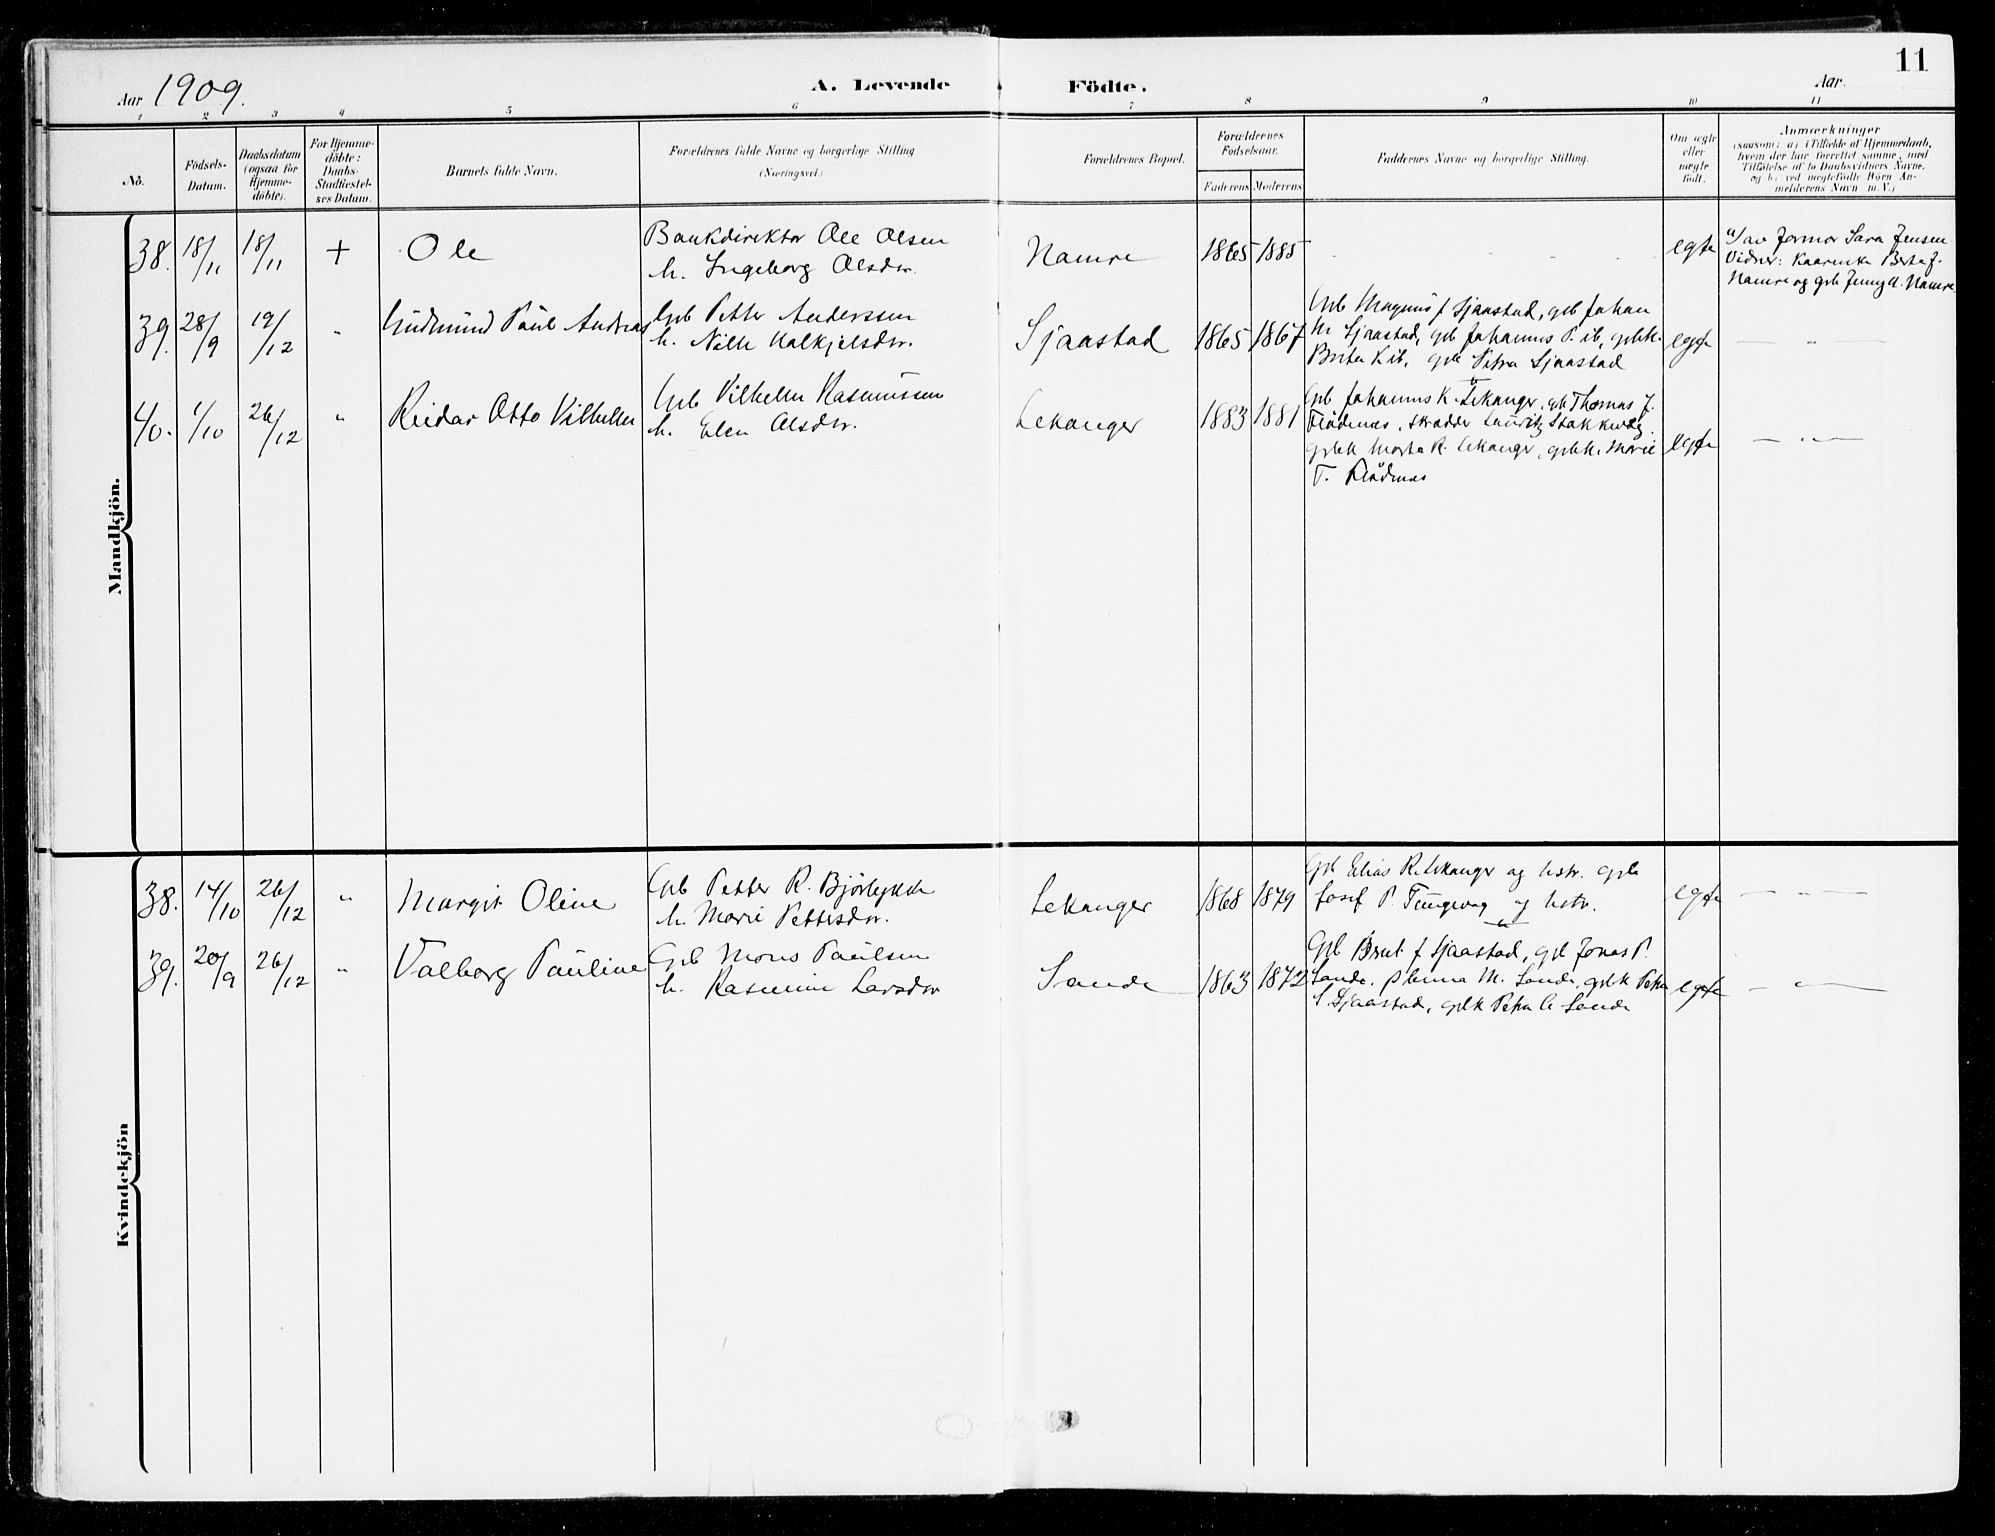 11
Aar 1909.
A. Levende Födte.
Aar.
1 2 3 4 5 6 7 8 9 10 11
No.
Födsels-
Datum.
Daabsdatum
(ogsaa for
Hjemme-
döbte).
For Hjemme-
döbte:
Daabs-
Stadfæstel-
ses Datum.
Barnets fulde Navn.
Forældrenes fulde Navne og borgerlige Stilling
(Næringsvei.)
Forældrenes Bopæl.
Forældrenes
Födselsaar.
Faderens Moderens
Faddernes Navne og borgerlige Stilling.
Om ægte
eller
uægte
födt.
Anmærkninger
(saasom: a) i Tilfælde af Hjemmedaab,
hvem der har forrettet samme, med
Tilföielse af to Daabsvidners Navne.
og b) ved uægtefödte Börn An-
melderens Navn m. V.)
Mandkjön.
38. 18/11 18/11 + Ole
Bankdirektør Ole Olsen
h. Ingeborg Olsdtr.
Hamre 1865 1885
egte
a/ av Jormor Sara Jensen
Vidner: Kaarinka Berte J.
Hamre og grb Jenny A. Hamre
39. 28/9 19/12 " Gudmund Paul Andreas
Grb Petter Anderssen
h. Nille Halkjelsdtr.
Sjaastad 1865 1867
Grb Magnus J Sjaastad, grb Johan
M Sjaastad, grb Johannes P. ib, grbk.
Brite L ib, grb Petra Sjaastad
egte — " —
40. 1/10 26/12 " Reidar Otto Vilhelm
Grb Vilhelm Rasmussen
h. Elen Olsdtr.
Lekanger 1883 1881
Grb Johannes K. Lekanger, grb Thomas J.
Flödenes, skrædder Lauritz Stokkevåg
grbk Marta R. Lekanger, grbk. Marie
T. Flödenes
egte — " —
Kvindekjön
38. 14/10 26/12 " Margit Oline
Grb Petter R. Bjørlykke
h. Marie Pettersdtr.
Lekanger 1868 1879
Grb Elias R. Lekanger og hstr. grb
Josef P. Tungevag og hstr.
egte — " —
39. 20/9 26/12 " Valborg Pauline
Grb Mons Paulsen
h. Rasmine Larsdtr
Sande 1863 1872
Grb Brent J Sjaastad, grb Jonas P.
Sande, P M. Sande, grbk Petra
L Sjaastad, grbk Petra A Sande
egte — " —